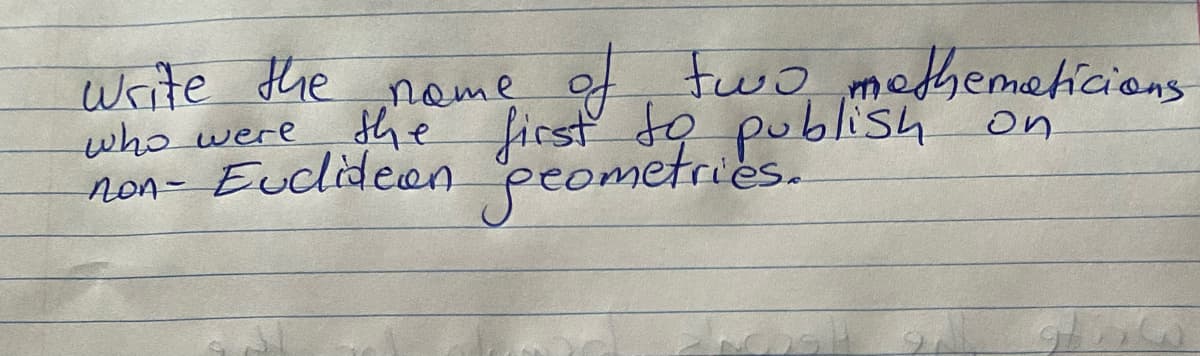 Write the name of two mathematicians
who were the first to publish on
non- Euclidean geometries.